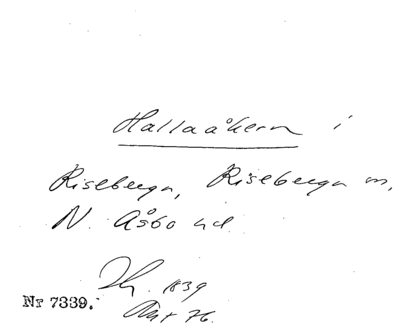 Hallaåkern i
Riseberga, Riseberga sn,
N. Åsbo hd
1839
Akt 76.
Nr 7339.